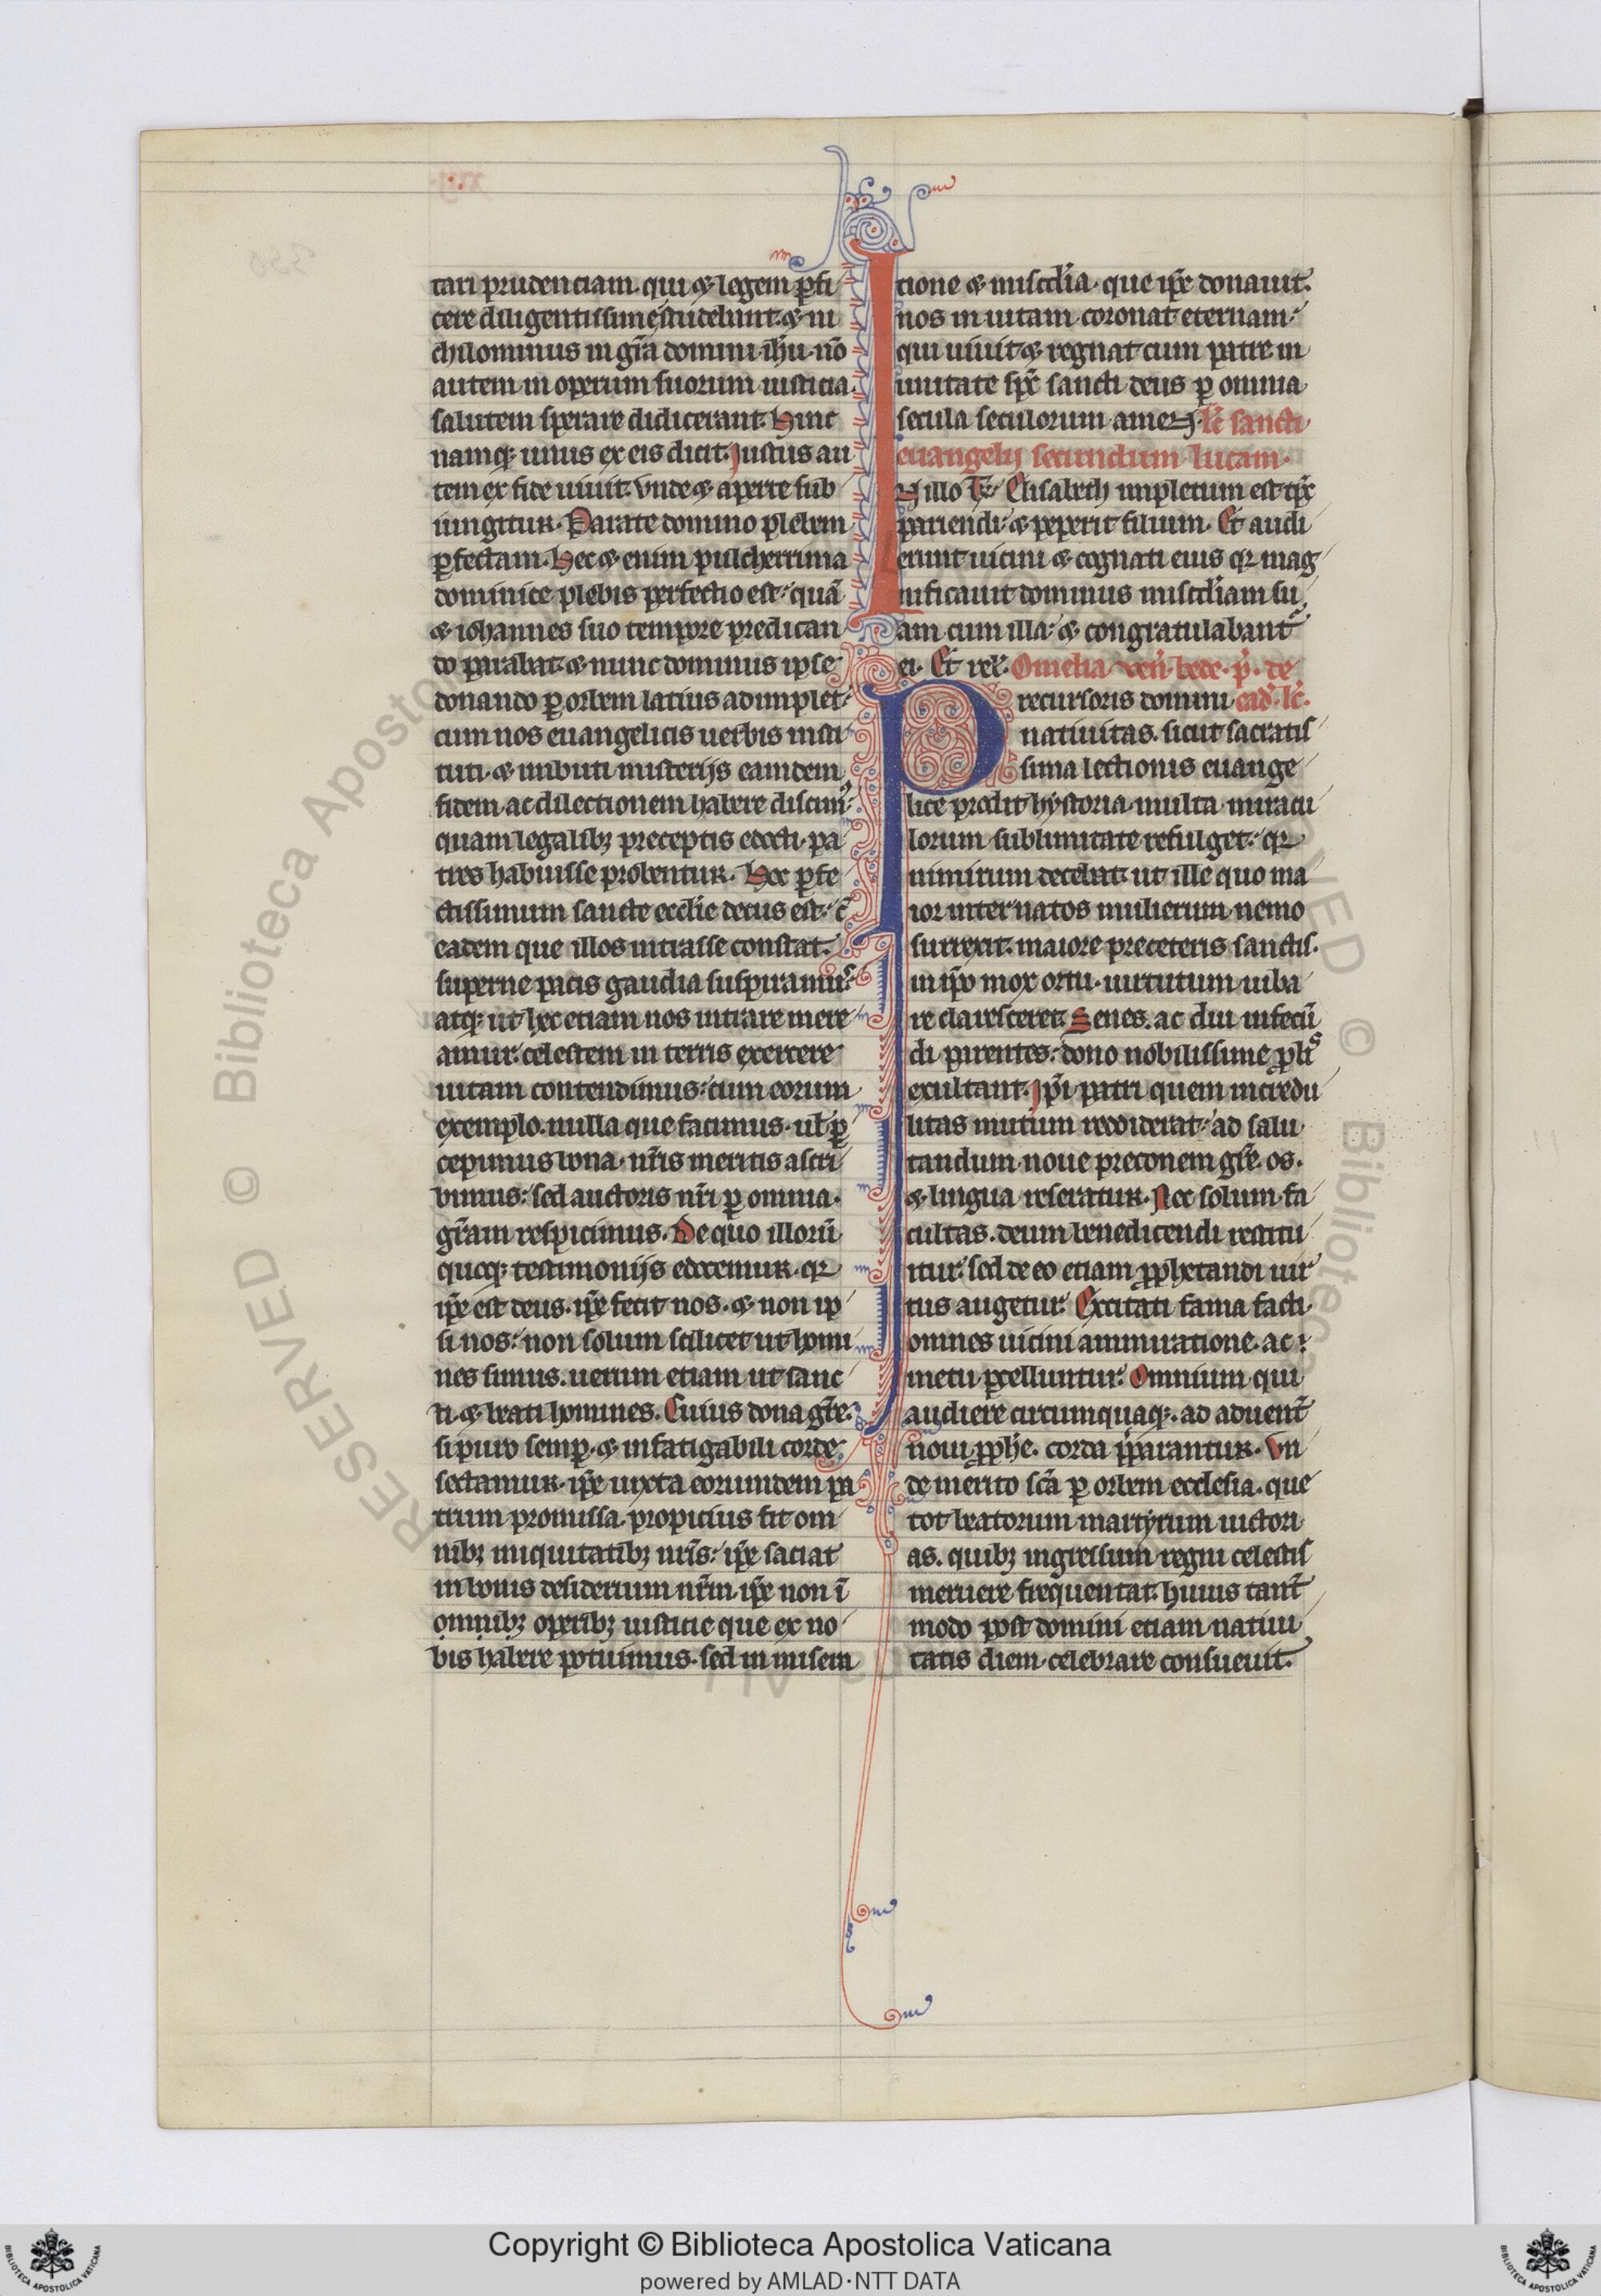 tari prudenciam. qui ⁊ legem ꝑfi
cere diligentissime studebunt. ⁊ ni
chilominus in gr̄a domini ih̄u. nō
autem in operum suorum iusticia.
salutem sperare didicerant. Hinc
namq; unus ex eis dicit. Justus au
tem ex fide uiuit. vnde ⁊ aperte sub
iungitur. Parate domino plebem
ꝑfectam. Hec ⁊ enim pulcherrima
dominice plebis perfectio est: quā
⁊ iohannes suo tempore predican
do parabat. ⁊ nunc dominus ipse
donando ꝑ orbem latius adimplet:
cum nos euangelicis uerbis insti
tuti. ⁊ imbuti misterijs eamdem
fidem ac dilectionem habere discim᷒:
quam legalibꝫ preceptis edocti. pa
tres habuisse probentur. Hec ꝑfe
ctissimum sancte eccl̄ie decus est: c̄
eadem que illos intrasse constat.
superne pacis gaudia suspiramus:
atq; ut hec etiam nos intrare mere
amur: celestem in terris exercere
uitam contendimus: cum eorum
exemplo. nulla que facimus. ul̄ ꝑ
cepimus bona. nr̄is meritis ascri
bimus: sed auctoris nr̄i ꝑ omnia.
gr̄am respicimus. De quo illorū
quoq; testimonijs edocemur. qꝛ
ip̄e est deus. ip̄e fecit nos. ⁊ non ip
si nos: non solum scilicet ut homi
nes simus. uerum etiam ut sanc
ti. ⁊ beati homines. Cuius dona gr̄e.
si puro semꝑ. ⁊ infatigabili corde
sectamur. ip̄e iuxta eorumdem pa
trum promissa. propicius fit om
nibꝫ iniquitatibꝫ nr̄is: ip̄e saciat
in bonis desiderium nr̄m. ip̄e non ī
omnibꝫ operibꝫ iusticie que ex no
bis habere potuimus. sed in misera
tione ⁊ miscd̄ia. que ip̄e donauit.
nos in uitam coronat eternam:
qui uiuit ⁊ regnat cum patre in
unitate sp̄c sancti deus ꝑ omnia
secula seculorum amen. lc̄ sancti
euangelij secundum lucam.
IN illo t̄. Elisabeth impletum est tp̄c
pariendi: ⁊ peperit filium. Et audi
erunt uicini ⁊ cognati eius qꝛ mag
nificauit dominus miscd̄iam su
am cum illa: ⁊ congratulabant᷑
ei. Et rel̄. Omelia ven̄. bede. p̄. de
Precursoris domini ead̄. lc̄.
natiuitas. sicut sacratis
sima lectionis euange
lice prodit hystoria. multa miracu
lorum sublimitate refulget: qꝛ
nimirum decebat ut ille quo ma
ior inter natos mulierum nemo
surrexit. maiore preceteris sanctis.
in ip̄o mox ortu. uirtutum iuba
re claresceret. Senes. ac diu infecū
di parentes: dono nobilissime ꝓlis
exultant. Ip̄i patri quem incredu
litas mutum reddiderat: ad salu
tandum noue preconem gr̄e. os.
⁊ lingua reseratur. Nec solum fa
cultas. deum benedicendi restitu
itur: sed de eo etiam ꝓphetandi uir
tus augetur. Excitati fama facti.
omnes uicini ammiratione. ac
metu ꝑcelluntur: Omnium qui
audiere circumquaq;. ad aduent̄
noui ꝓph̄e. corda p̄parantur. Vn
de merito sc̄a ꝑ orbem ecclesia. que
tot beatorum martyrum uictori
as. quibꝫ ingressum regni celestis
meruere frequentat. huius tant̄
modo post domini etiam natiui
tatis diem celebrare consueuit.
Copyright © Biblioteca Apostolica Vaticana
powered by AMLAD·NTT DATA